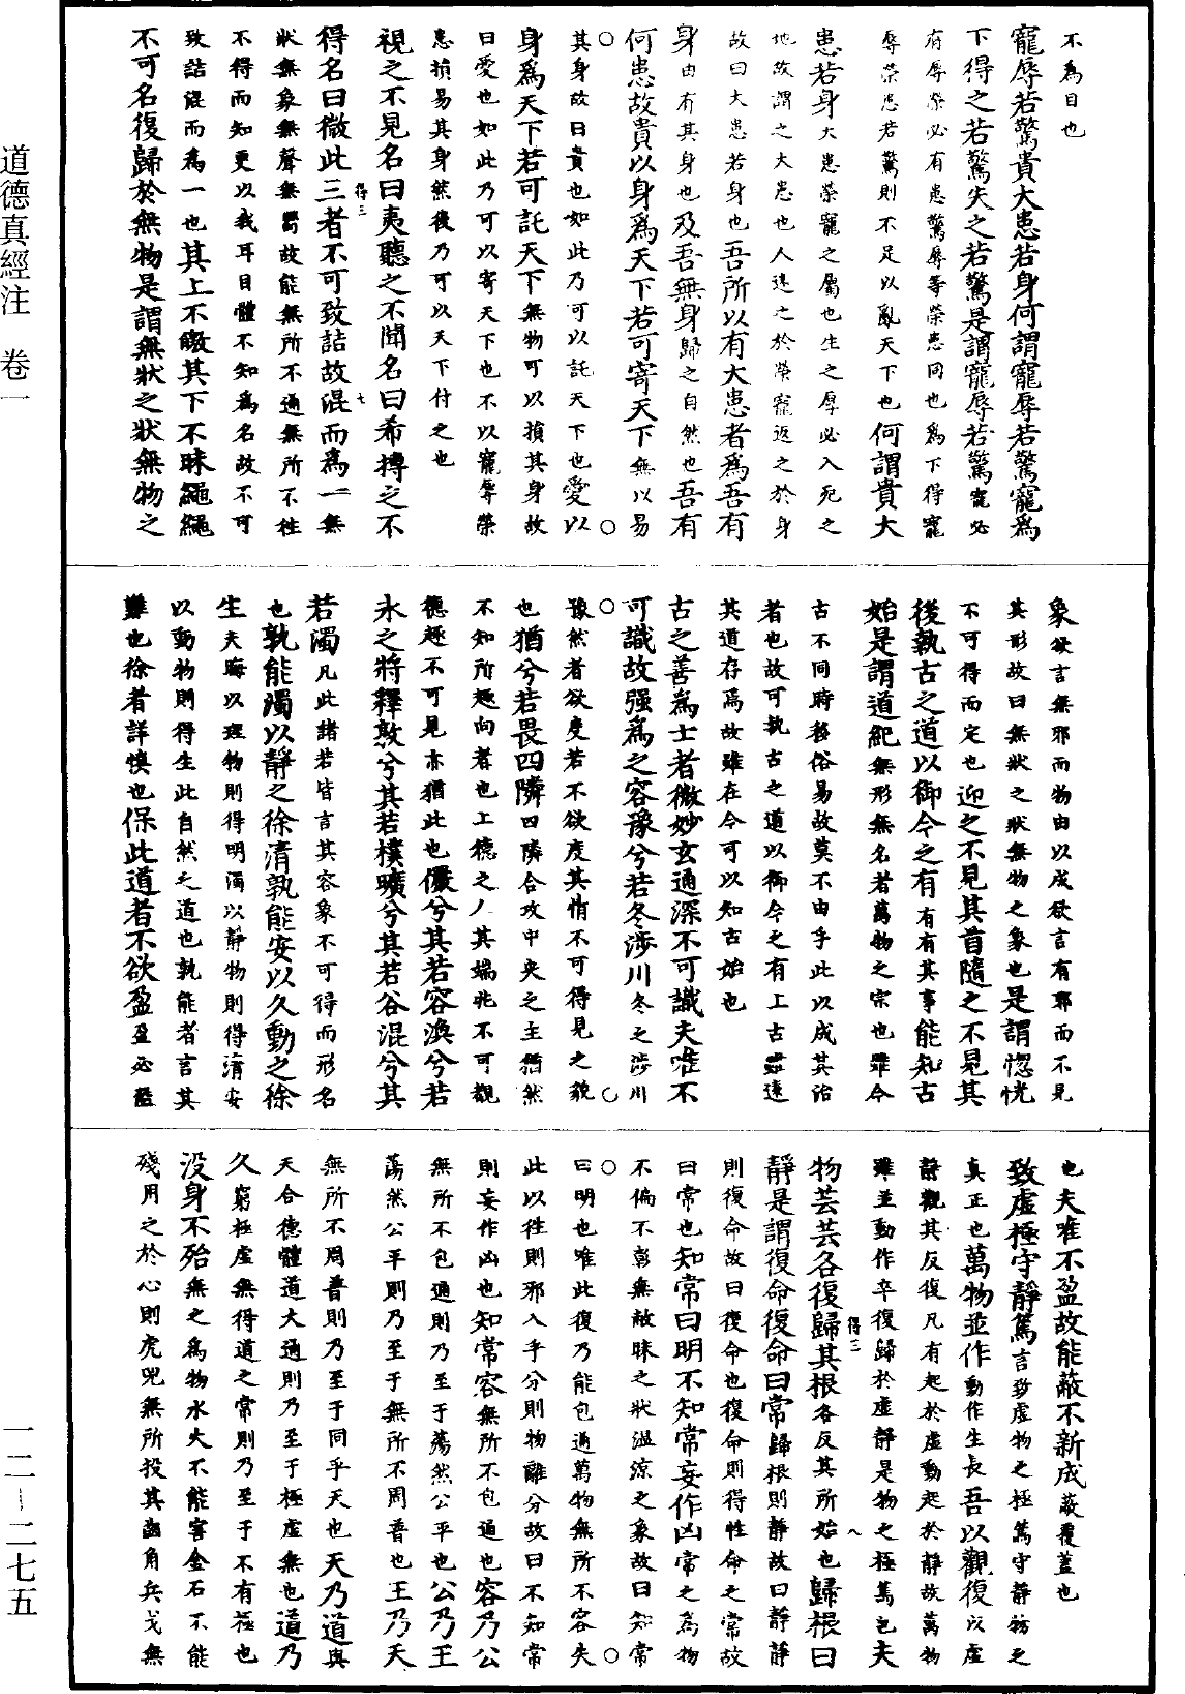 不為目也
寵辱若驚貴大患若身何謂寵辱若驚寵為
下得之若驚失之若驚是謂寵辱若驚寵必
有辱榮必有患驚辱等榮患同也為下得寵
辱榮患若驚則不足以亂天下也何謂貴大
患若身大患榮寵之屬也生之厚必入死之
地故謂之大患也人迷之於榮寵返之於身
故曰大患若身也吾所以有大患者為吾有
身由有其身也及吾無身歸之自然也吾有
何患故貴以身為天下若可寄天下無以易
其身故曰貴也如此乃可以託天下也愛以
身為天下若可託天下無物可以損其身故
曰愛也如此乃可以寄天下也不以寵辱榮
患損易其身然後乃可以天下付之也
視之不見名曰夷聽之不聞名曰希搏之不
得名曰微此三者不可致詰故混而為一無
狀無象無聲無響故能無所不通無所不往
不得而知更以我耳目體不知為名故不可
致詰混而為一也其上不皦其下不昧繩繩
不可名復歸於無物是謂無狀之狀無物之
得三
七
象欲言無邪而物由以成欲言有邪而不見
其形故曰無狀之狀無物之象也是謂惚恍
不可得而定也迎之不見其首隨之不見其
後執古之道以御今之有有有其事能知古
始是謂道紀無形無名者萬物之宗也雖今
古不同時移俗易故莫不由乎此以成其治
者也故可執古之道以御今之有上古雖遠
其道存焉故雖在今可以知古始也
古之善為士者微妙玄通深不可識夫唯不
可識故强為之容豫兮若冬涉川冬之涉川
豫然者欲度若不欲度其情不可得見之貌
也猶兮若畏四隣四隣合攻中央之主猶然
不知所趣向者也上德之人其端兆不可覩
德趣不可見亦猶此也儼兮其若容渙兮若
氷之將釋敦兮其若樸曠兮其若谷混兮其
若濁凡此諸若皆言其容象不可得而形名
也孰能濁以靜之徐清孰能安以久動之徐
生夫晦以理物則得明濁以靜物則得清安
以動物則得生此自然之道也孰能者言其
難也徐者詳慎也保此道者不欲盈盈必溢
也夫唯不盈故能蔽不新成蔽覆蓋也
致虛極守靜篤言致虛物之極篤守靜物之
真正也萬物並作動作生長吾以觀復以虛
靜觀其反復凡有起於虛動起於靜故萬物
雖並動作卒復歸於虛靜是物之極篤也夫
物芸芸各復歸其根各反其所始也歸根曰
靜是謂復命復命曰常歸根則靜故曰靜靜
則復命故曰復命也復命則得性命之常故
曰常也知常曰明不知常妄作凶常之為物
不偏不彰無皦昧之狀溫涼之象故曰知常
曰明也唯此復乃能包通萬物無所不容失
此以往則邪入乎分則物離分故曰不知常
則妄作凶也知常容無所不包通也容乃公
無所不包通則乃至于蕩然公平也公乃王
蕩然公平則乃至于無所不周普也王乃天
無所不周普則乃至于同乎天也天乃道與
天合德體道大通則乃至于極虛無也道乃
久窮極虛無得道之常則乃至于不有極也
没身不殆無之為物水火不能害金石不能
殘用之於心則虎兕無所投其齒角兵戈無
得三
八
道德真經注 卷一
一二—二七五